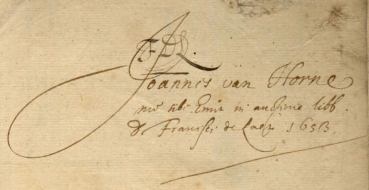 Joannes van Horne
sibi Emit in auctione libb.
D. Francisci de Laet 1653